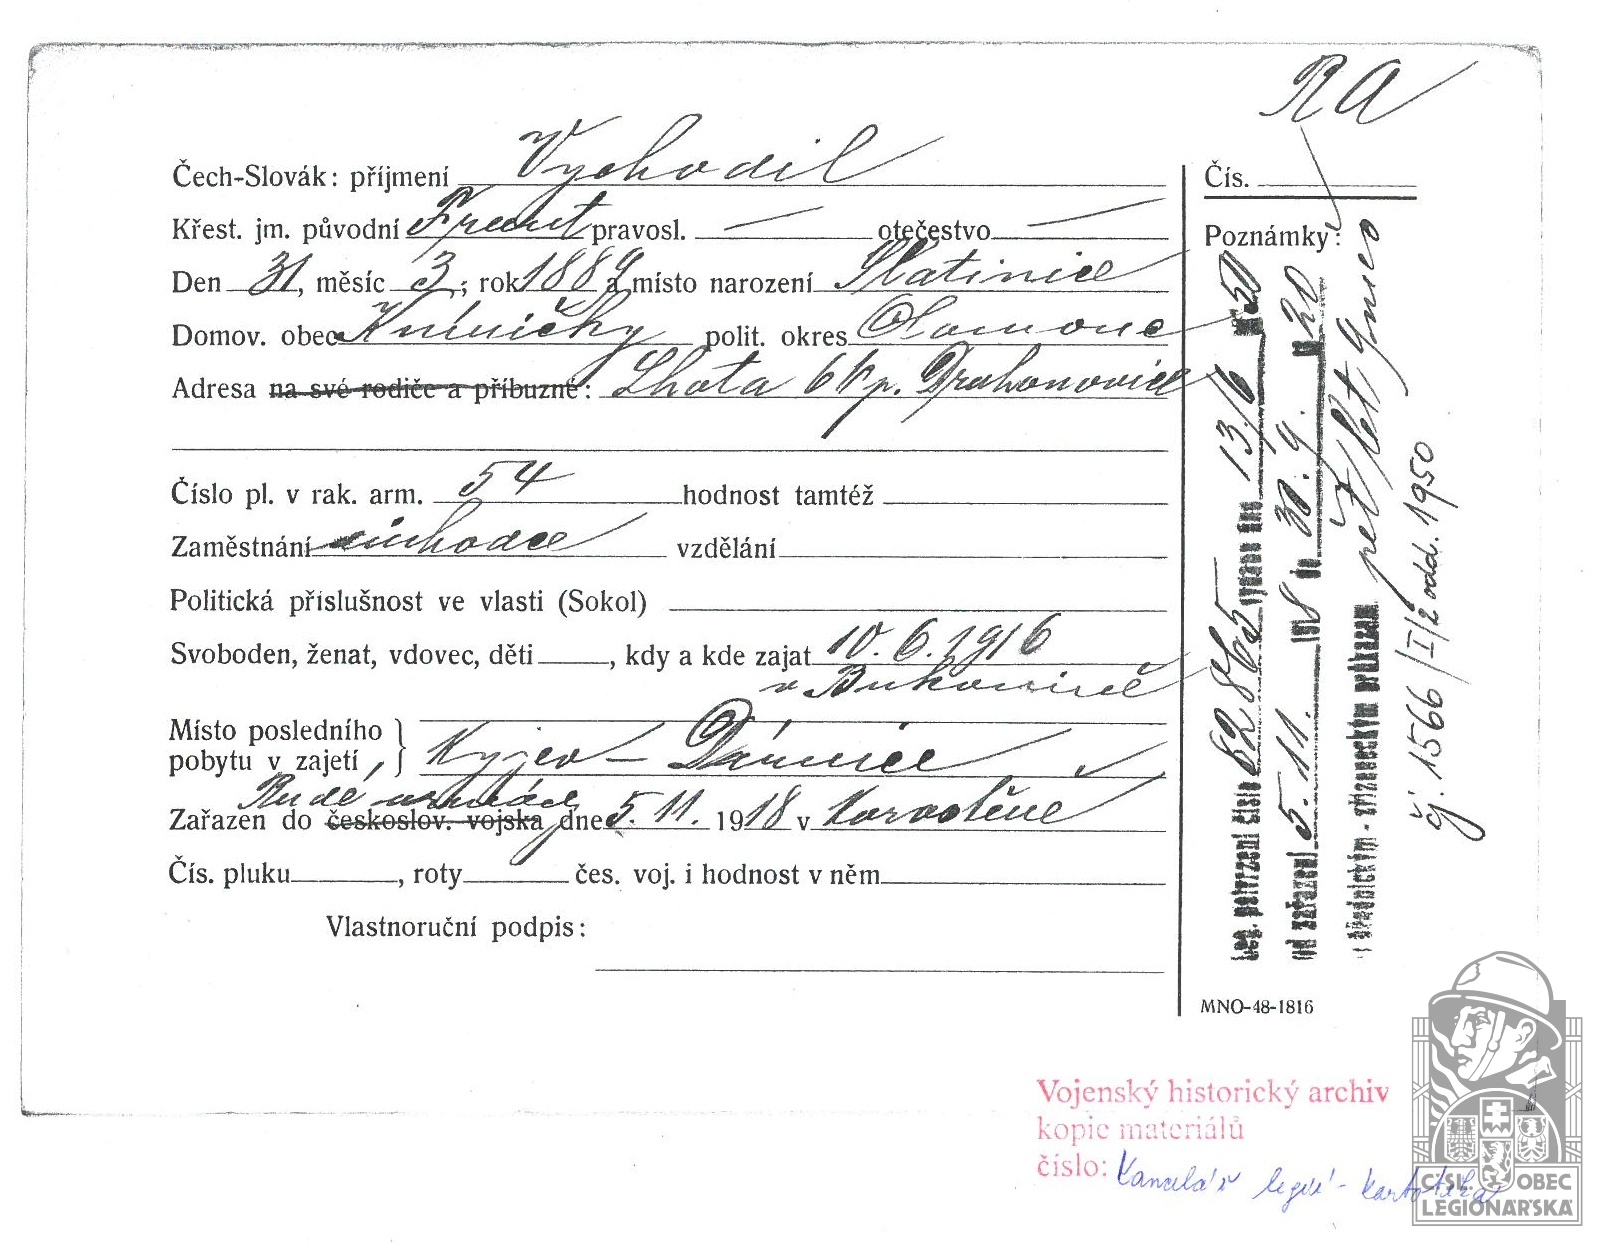 RA
Čech-Slovák: příjmení Vychodil
Křest. jm. původní Frant pravosl. — otečestvo —
Den 31, měsíc 3, rok 1889, místo narození Slatinice
Domov. obec Kníničky polit. okres Olomouc
Adresa na své rodiče a příbuzné: Lhota 61 p. Drahanovice
Číslo pl. v rak. arm. 54 hodnost tamtéž
Zaměstnání vzdělání
Politická příslušnost ve vlasti (Sokol)
Svoboden, ženat, vdovec, děti , kdy a kde zajat 10. 6. 1916
v Bukovině
Místo posledního
pobytu v zajetí, Kyjev – Dárnice
Rudé armády
Zařazen do českoslov. vojska dne 5. 11. 1918 v
Čís. pluku , roty čes. voj. i hodnost v něm
Vlastnoruční podpis:
Čís.
Poznámky:
Leg. potvrzení číslo 82865 vydáno dne 13/6 50
od zařazení 5. 11. 1918 do 30. 9. 20
s úředním
čj. 1566/I/2 odd. 1950
MNO-48-1816
Vojenský historický archiv
kopie materiálů
číslo: Kancelář legií - kartotéka
ČSL. OBEC
LEGIONÁŘSKÁ